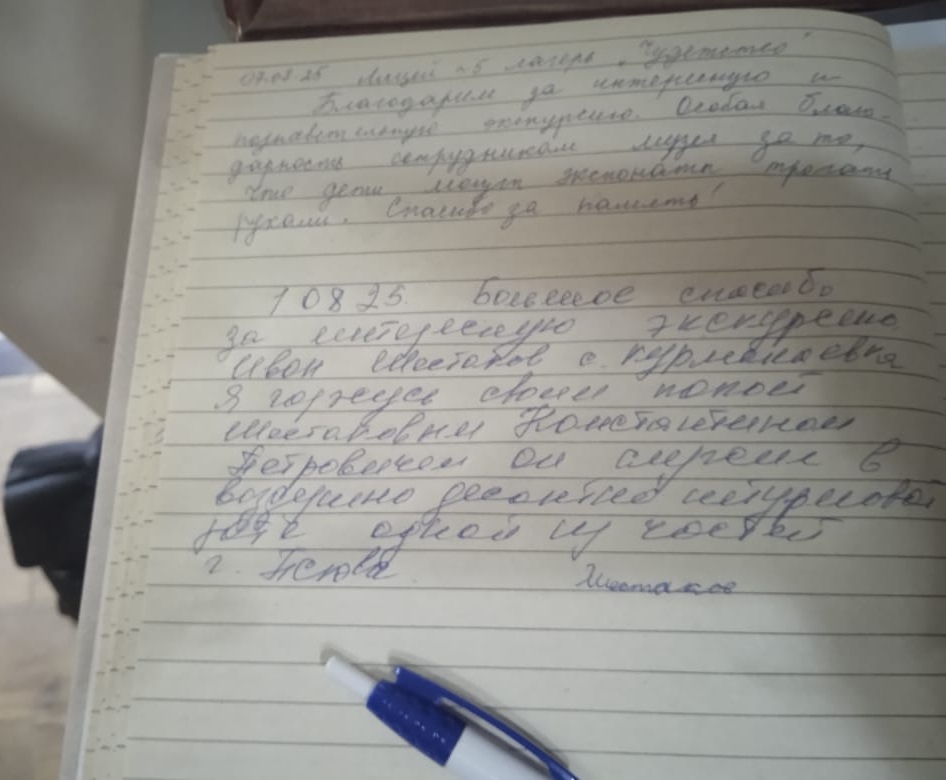 07.08.25 Лицей №5 лагерь "Чудетство"
Благодарим за интересную и
познавательную экскурсию. Особая благо-
дарность сотрудникам музея за то,
что дети могут экспонаты трогать
руками. Спасибо за память!
1 08 25. Большое спасибо
за интересную экскурсию
Иван Шестаков с. Курманаевка
Я горжусь своим папой
Шестаковым Константином
Петровичем он служил в
воздушно десантно штурмовой
роте одной из частей
г. Пскова
Шестаков